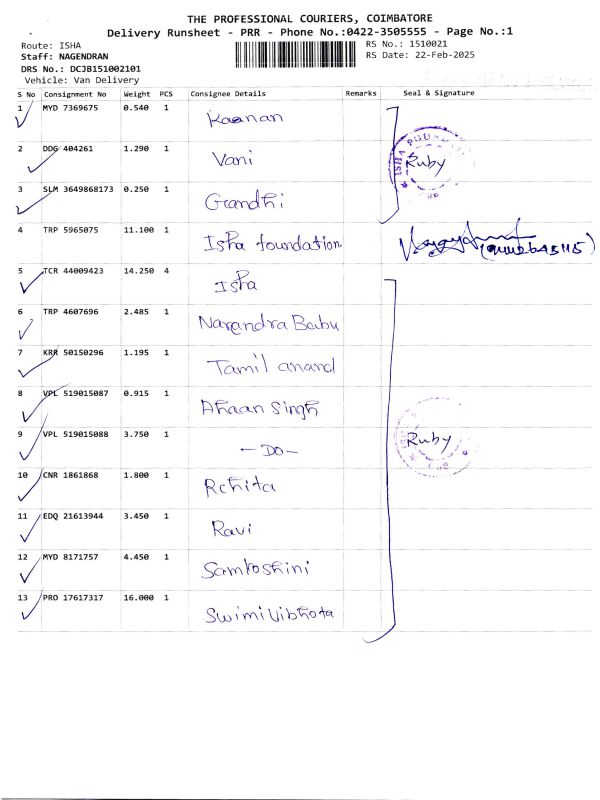 THE PROFESSIONAL COURIERS, COIMBATORE
Delivery Runsheet - PRR - Phone No.:0422-3505555 - Page No.:1
Route: ISHA
RS No.: 1510021
Staff: NAGENDRAN
RS Date: 22-Feb-2025
DRS No.: DCJB151002101
Vehicle: Van Delivery
S No Consignment No Weight PCS Consignee Details Remarks Seal & Signature
1 MYD 7369675 0.540 1 Kannan
2 DDG 404261 1.290 1 Vani
ISHA
Ruby
3 SLM 3649868173 0.250 1 Grandhi
4 TRP 5965075 11.100 1 Isha foundation
5 TCR 44009423 14.250 4 Isha
6 TRP 4607696 2.485 1 Narandra Babu
7 KRR 50150296 1.195 1 Tamil anand
8 VPL 519015087 0.915 1 Ahaan Singh
9 VPL 519015088 3.750 1 - DO -
Ruby
10 CNR 1861868 1.800 1 Rchita
11 EDQ 21613944 3.450 1 Ravi
12 MYD 8171757 4.450 1 Samtoshini
13 PRO 17617317 16.000 1 Swimi Vibhota